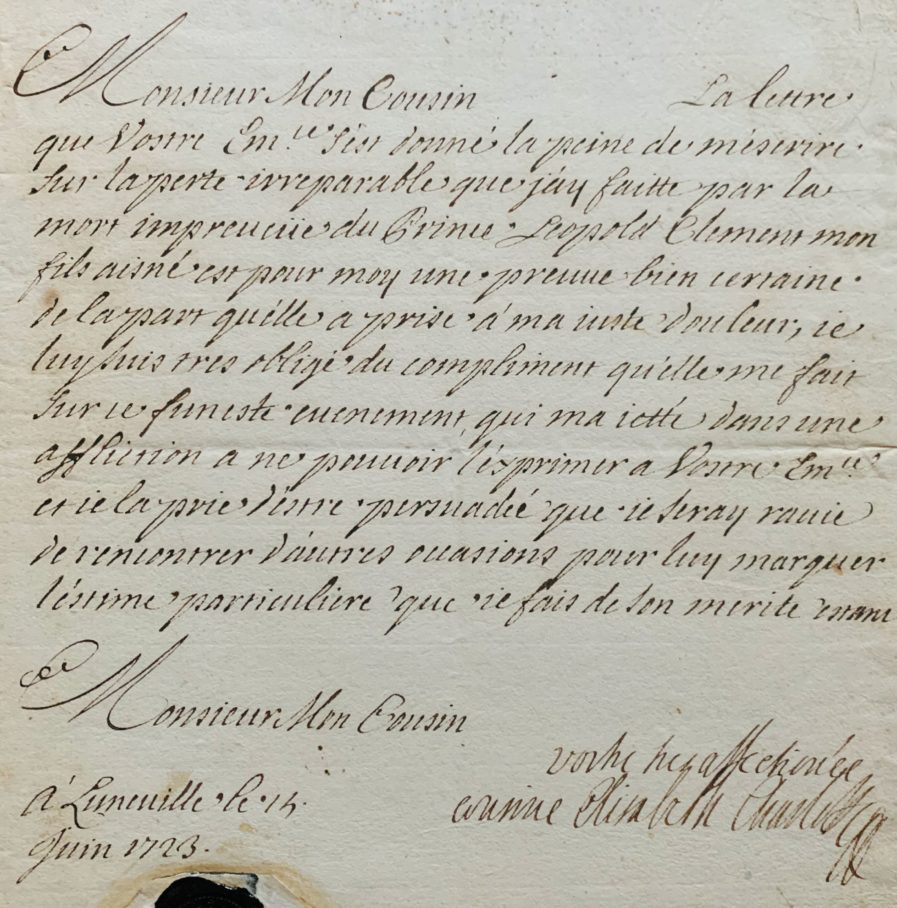 Monsieur Mon Cousin La lettre
que Vostre Em.ce s'est donné la peine de m'éscrire
sur la perte irreparable que j'ay faitte par la
mort impreuüe du Prince Leopold Clement mon
fils aisné est pour moy une preuue bien certaine
de la part qu'élle a prise á ma iuste douleur, ie
luy suis tres obligé du compliment qu'élle me fait
sur ce funeste euenement, qui ma ietté dans une
affliction a ne pouuoir l'éxprimer a Vostre Em.ce
et ie la prie d'éstre persuadée que ie seray rauie
de rencontrer d'áutres occasions pour luy marquer
l'éstime particuliére que ie fais de son merite estant
Monsieur Mon Cousin
vostre tres affectionée
cousine Elisabeth Charlotte
á Luneuille le 14
Juin 1723.